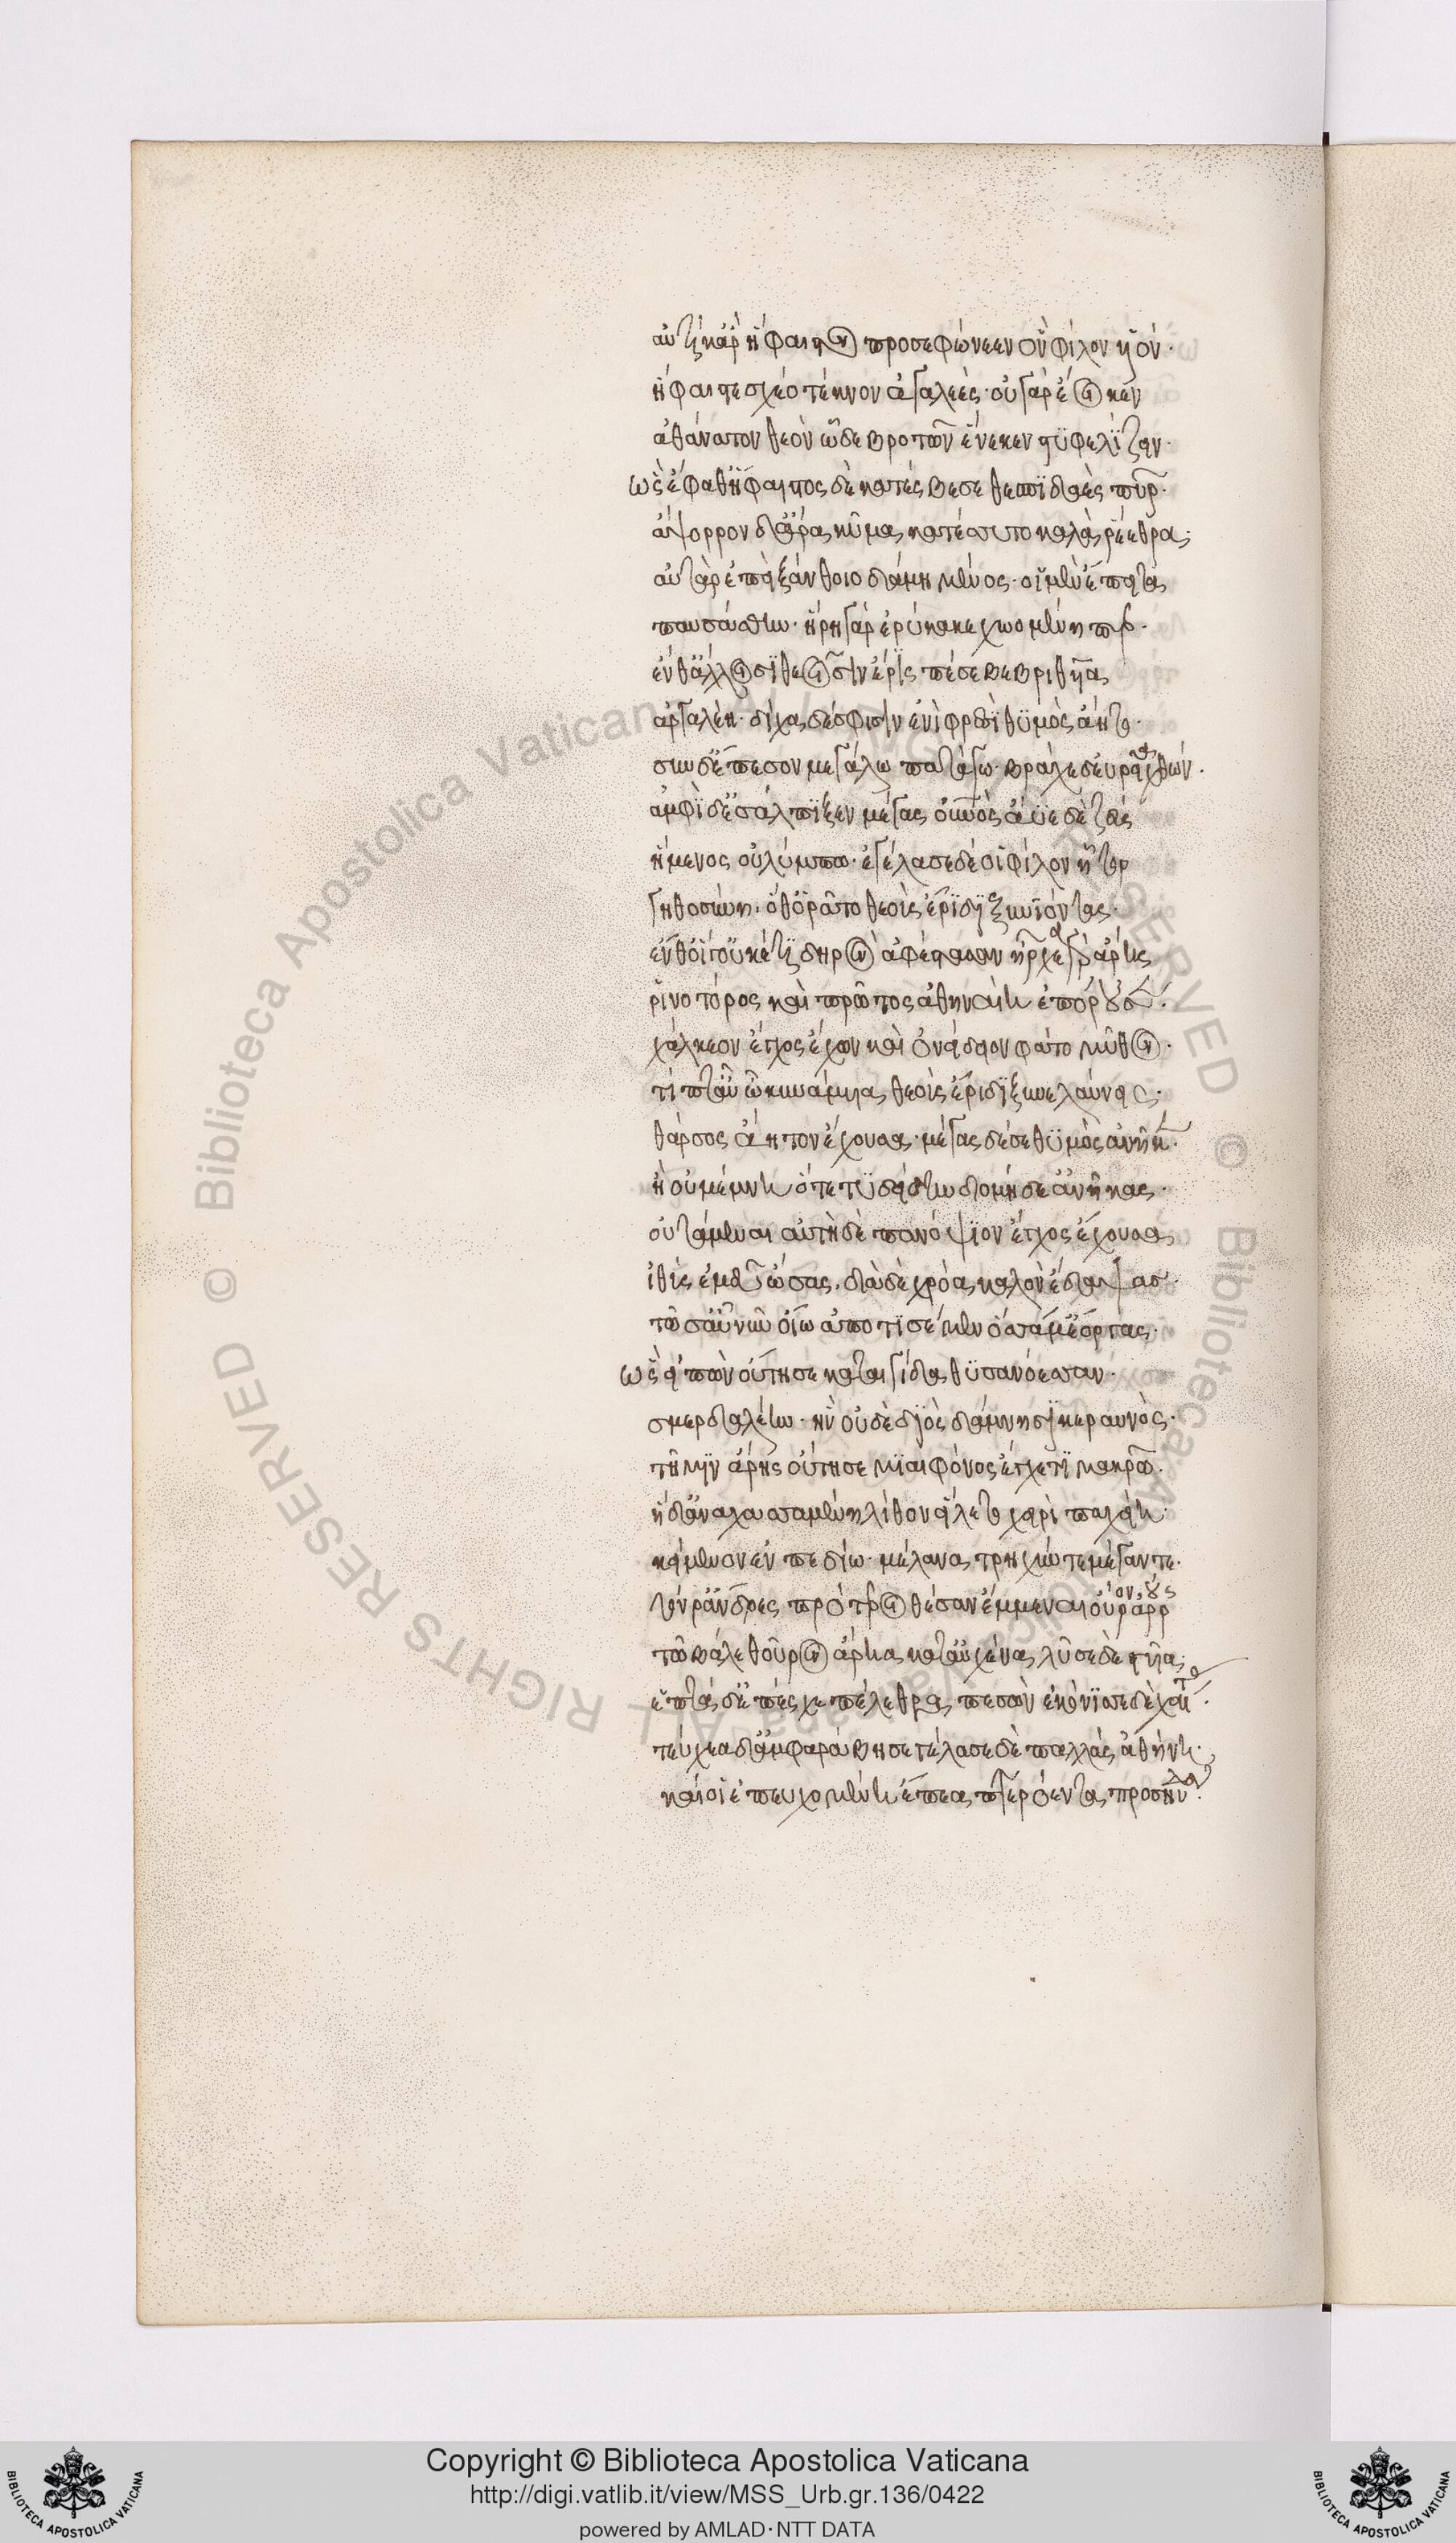 αὐτίκ' ἄρ' ἥφαιστον προσεφώνεεν ὃν φίλον υἱόν·
ἥφαιστε σχέο τέκνον ἀγακλεές· οὐ γὰρ ἔοικεν
ἀθάνατον θεὸν ὧδε βροτῶν ἕνεκεν στυφελίζειν·
ὣς ἔφαθ' ἥφαιστος δὲ κατέσβεσε θεσπιδαὲς πῦρ·
ἄψορρον δ' ἄρα κῦμα κατέσσυτο καλὰ ῥέεθρα·
αὐτὰρ ἐπεὶ ξάνθοιο δάμη μένος· οἱ μὲν ἔπειτα
παυσάσθην· ἥρη γὰρ ἐρύκακε χωομένη περ·
ἐν δ' ἄλλοισι θεοῖσιν ἔρις πέσε βεβριθυῖα
ἀργαλέη· δίχα δέ σφισιν ἐνὶ φρεσὶ θυμὸς ἄητο·
σὺν δ' ἔπεσον μεγάλω πατάγω· βράχε δ' εὐρεῖα χθών·
ἀμφὶ δὲ σάλπιγξεν μέγας οὐρανὸς ἄϊε δὲ ζεὺς
ἥμενος οὐλύμπω· ἐγέλασε δέ οἱ φίλον ἦτορ
γηθοσύνη· ὅθ' ὁρᾶτο θεοὺς ἔριδι ξυνιόντας·
ἔνθ' οἵ γ' οὐκέτι δηρὸν ἀφέστασαν ἦρχε γὰρ ἄρης
ῥινοτόρος καὶ πρῶτος ἀθηναίη ἐπόρουσε·
χάλκεον ἔγχος ἔχων καὶ ὀνείδειον φάτο μῦθον·
τίπτ' αὖτ' ὦ κυνάμυια θεοὺς ἔριδι ξυνελαύνεις·
θάρσος ἄητον ἔχουσα· μέγας δέ σε θυμὸς ἀνῆκε·
ἦ οὐ μέμνη ὅτε τυδείδην διομήδε' ἀνῆκας·
οὐτάμεναι αὐτὴ δὲ πανόψιον ἔγχος ἔχουσα
ἰθὺς ἐμεῦ ὦσας· διὰ δὲ χρόα καλὸν ἔδαψας·
τῶ σ' αὖ νῦν ὀΐω ἀποτισέμεν ὅσσα μ' ἔοργας·
ὣς εἰπὼν οὔτησε κατ' αἰγίδα θυσανόεσσαν·
σμερδαλέην· ἣν οὐδὲ διὸς δάμνησι κεραυνὸς·
τῇ μιν ἄρης οὔτησε μιαιφόνος ἔγχεϊ μακρῶ·
ἡ δ' ἀναχασσαμένη λίθον εἵλετο χειρὶ παχείη·
κείμενον ἐν πεδίω· μέλανα τρηχύν τε μέγαν τε·
τόν ῥ' ἄνδρες πρότεροι θέσαν ἔμμεναι οὖρον ἀρούρης
τῶ βάλε θοῦρον ἄρηα κατ' αὐχένα λῦσε δὲ γυῖα·
ἑπτὰ δ' ἐπέσχε πέλεθρα πεσὼν ἐκόνισε δὲ χαίτας·
τεύχεα δ' ἀμφαράβησε γέλασε δὲ παλλὰς ἀθήνη·
καί οἱ ἐπευχομένη ἔπεα πτερόεντα προσηύδα·
Copyright © Biblioteca Apostolica Vaticana
http://digi.vatlib.it/view/MSS_Urb.gr.136/0422
powered by AMLAD·NTT DATA